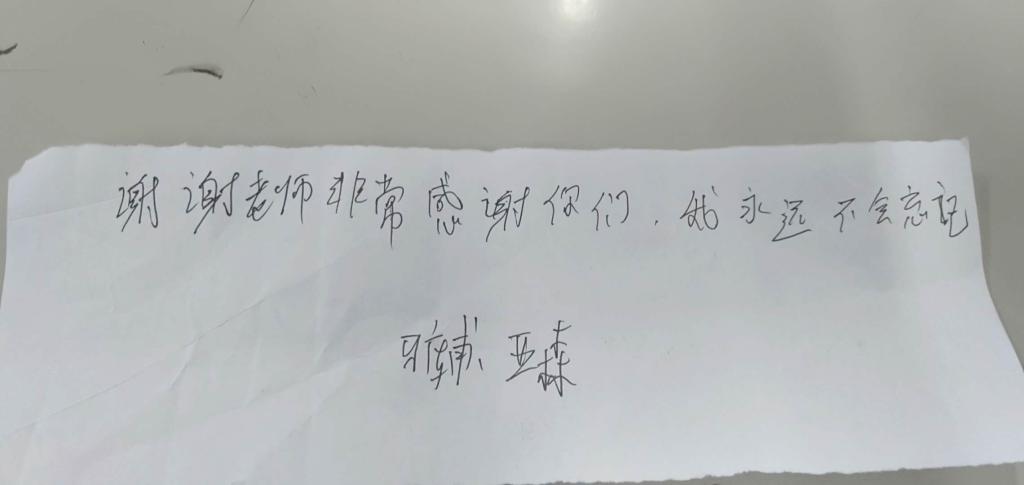 谢谢老师非常感谢你们，我永远不会忘记
亚森